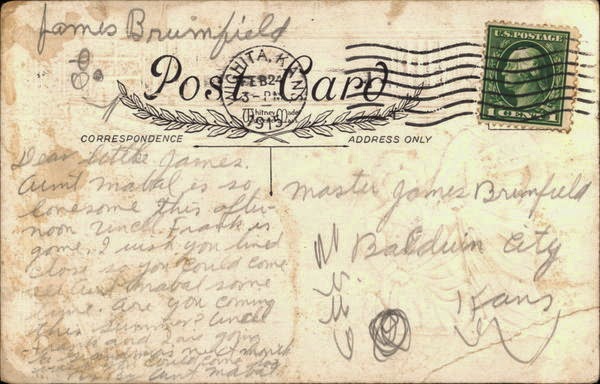 James Brumfield
Post Card
WICHITA, KANS.
FEB 24
3 - PM
1913
Whitney Made
U.S. POSTAGE
1 CENT 1
CORRESPONDENCE
ADDRESS ONLY
Dear little James.
Aunt Mabal is so
lonesome this after-
noon Uncle Frank is
gone. I wish you lived
close so you could come
see Aunt Mabal some
time. Are you coming
this summer? Uncle
and I are going
next month
you could come
Aunt Mabal
Master James Brumfield
Balduin City
Kans